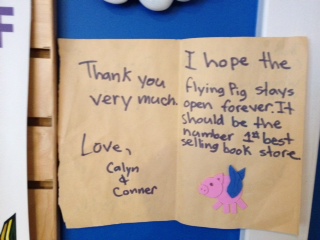 Thank you
very much.
Love,
Calyn
&
Conner
I hope the
flying Pig stays
open forever. It
should be the
number 1st best
selling book store